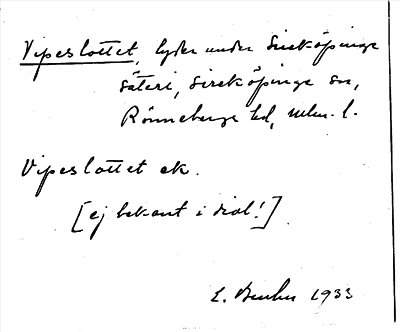 Vipeslottet, lyder under Sireköpinge
säteri, Sireköpinge sn,
Rönnebergs hd, Mlm. l.
Vipeslottet ek.
[ej bekant i dial!]
L. 1933